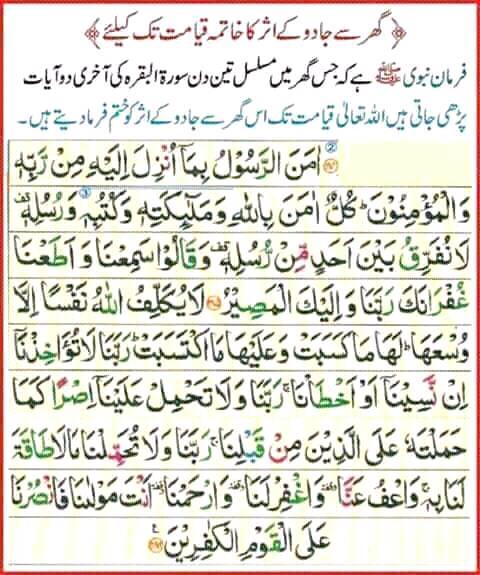 ﴿ گھر سے جادو کے اثر کا خاتمہ قیامت تک کیلئے ﴾
فرمان نبوی ﷺ ہے کہ جس گھر میں مسلسل تین دن سورۃ البقرہ کی آخری دو آیات
پڑھی جاتی ہیں اللہ تعالیٰ قیامت تک اس گھر سے جادو کے اثر کو ختم فرما دیتے ہیں۔
اٰمَنَ الرَّسُوْلُ بِمَاۤ اُنْزِلَ اِلَیْهِ مِنْ رَّبِّهٖ
وَالْمُؤْمِنُوْنَ ؕ كُلٌّ اٰمَنَ بِاللّٰهِ وَمَلٰٓىِٕكَتِهٖ وَكُتُبِهٖ وَرُسُلِهٖ ۫
لَا نُفَرِّقُ بَیْنَ اَحَدٍ مِّنْ رُّسُلِهٖ ۫ وَقَالُوْا سَمِعْنَا وَ اَطَعْنَا
غُفْرَانَكَ رَبَّنَا وَ اِلَیْكَ الْمَصِیْرُ ۝۲۸۵ لَا یُكَلِّفُ اللّٰهُ نَفْسًا اِلَّا
وُسْعَهَا ؕ لَهَا مَا كَسَبَتْ وَعَلَیْهَا مَا اكْتَسَبَتْ ؕ رَبَّنَا لَا تُؤَاخِذْنَاۤ
اِنْ نَّسِیْنَاۤ اَوْ اَخْطَاْنَا ۚ رَبَّنَا وَلَا تَحْمِلْ عَلَیْنَاۤ اِصْرًا كَمَا
حَمَلْتَهٗ عَلَی الَّذِیْنَ مِنْ قَبْلِنَا ۚ رَبَّنَا وَلَا تُحَمِّلْنَا مَا لَا طَاقَةَ
لَنَا بِهٖ ۚ وَاعْفُ عَنَّا ٝ وَاغْفِرْ لَنَا ٝ وَارْحَمْنَا ٝ اَنْتَ مَوْلٰىنَا فَانْصُرْنَا
عَلَی الْقَوْمِ الْكٰفِرِیْنَ ۝۲۸۶